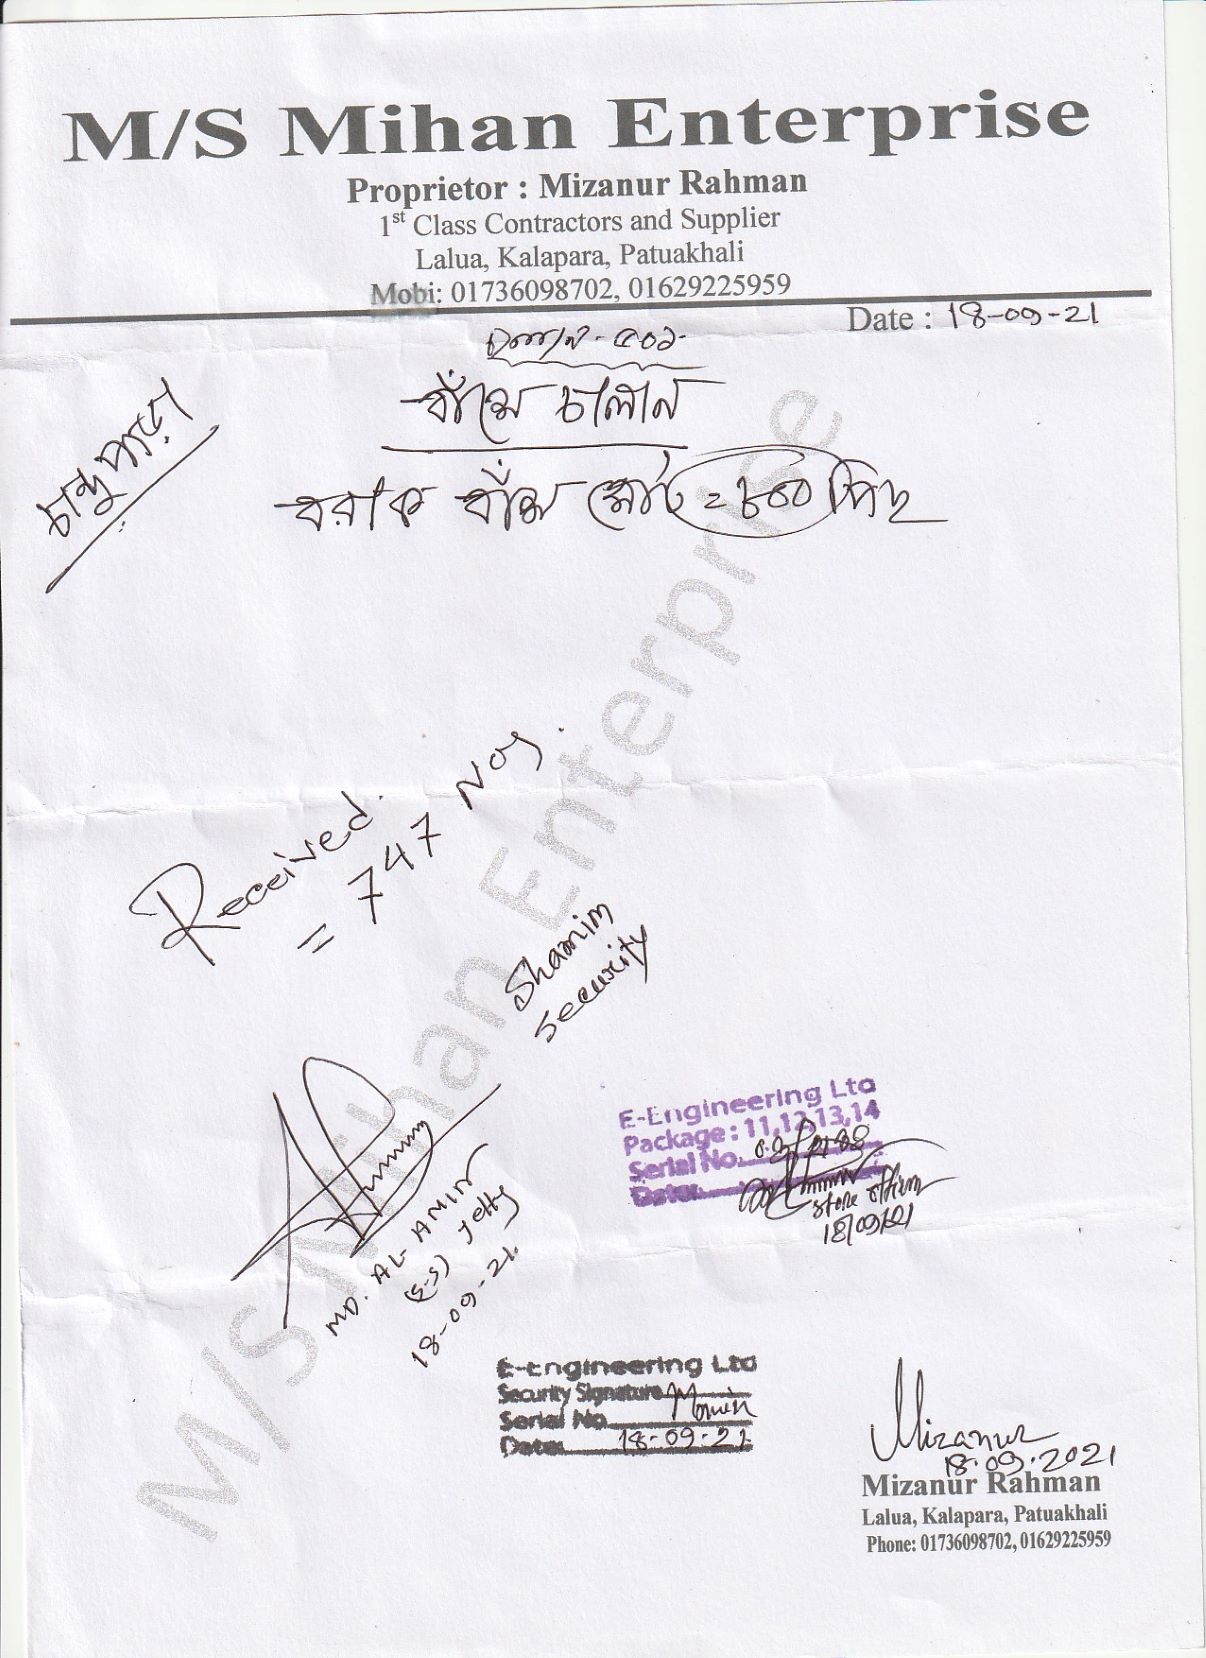 M/S Mihan Enterprise
Proprietor : Mizanur Rahman
1st Class Contractors and Supplier
Lalua, Kalapara, Patuakhali
Mobi: 01736098702, 01629225959
Date : 18-09-21
চালান - ৫০১
বাঁশের চালান
চান্দুপাড়া
বরাক বাঁশ মোট = ৮০০ পিছ
Received.
= 747 Nos.
Shamim
Security
MD. AL-AMIN
(S-S) Jetty
18-09-21.
E-Engineering Ltd
Package : 11,12,13,14
Serial No.
Date:
Store officer
18/09/21
E-Engineering Ltd
Security Signature Momin
Serial No
Date: 18-09-21
Mizanur
18.09.2021
Mizanur Rahman
Lalua, Kalapara, Patuakhali
Phone: 01736098702, 01629225959
M/S Mihan Enterprise